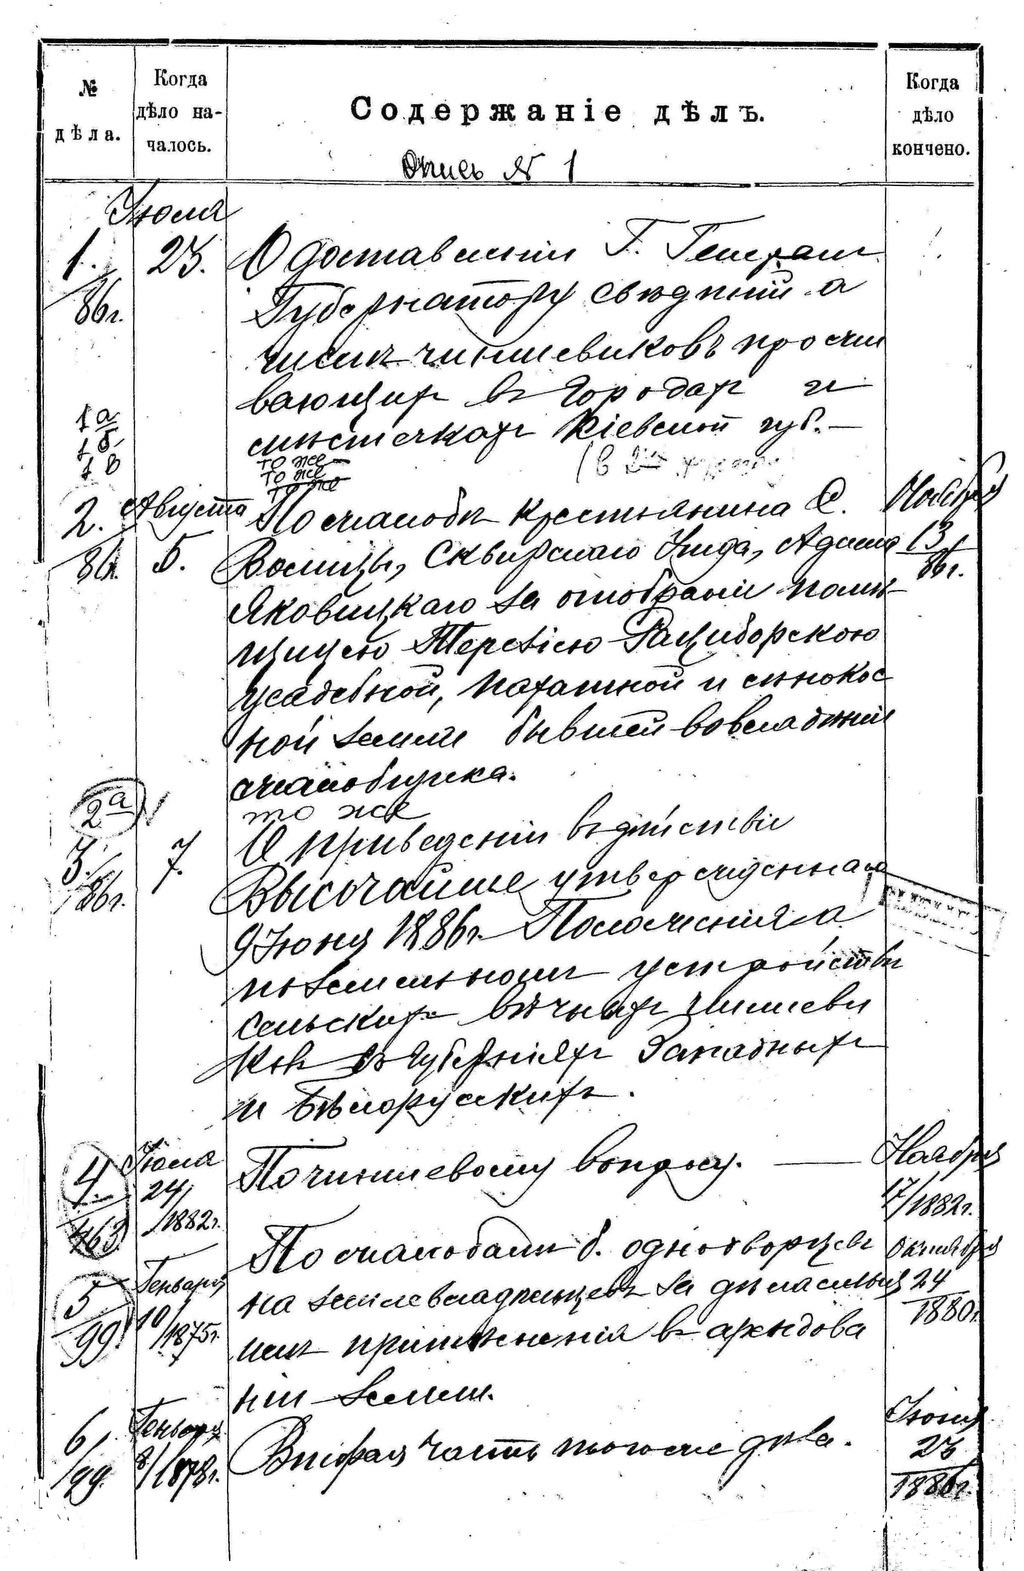 № дѣла.
Когда дѣло началось.
Содержаніе дѣлъ.
Когда дѣло кончено.
Опись № 1
Іюля
1. 23. О доставленіи Г. Генералъ
86г. Губернатору свѣдѣній о
числѣ чиншевиковъ прожи
вающихъ въ городахъ и
1а
1б
1в
мѣстечкахъ Кіевской губ. —
то же —
то же
то же
2. Августа По жалобѣ крестьянина с. Ноября
86г. 5. Волицы, Сквирскаго Уѣзда, Адама 13
86г.
Яковицкаго за отобраніи помѣ-
щицею Терезіею Рациборскою
усадебной, пахатной и сѣнокос
ной земли бывшей во владѣніи
жалобщика.
2а то же
3. 7. О приведеніи въ дѣйствіе
86г. Высочайше утвержденнаго
9 Іюня 1886г. Положенія о
поземельномъ устройствѣ
сельскихъ вѣчныхъ чиншеви
ковъ въ Губерніяхъ Западныхъ
и Бѣлорусскихъ.
4. Іюля По чиншевому вопросу. — Ноября
463 24/1882г. 17/1882г.
По жалобамъ б. однодворцевъ Октября
5 Генваря на землевладѣльцевъ за дѣлаемыя 24
99 10/1875г. 1880г.
имъ притѣсненія въ арендова
ніи земли.
6 Генваря Вторая часть того же дѣла. Іюня
99. 8/1878г. 23
1886г.